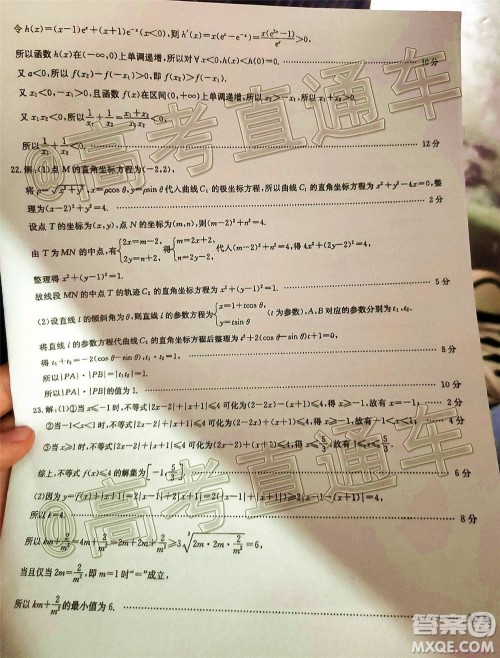 令 h(x)=(x-1)e^x+(x+1)e^{-x}(x<0),则 h′(x)=x(e^x-e^{-x})=x(e^{2x}-1)/e^x>0,
所以函数 h(x)在(-∞,0)上单调递增,所以对∀x<0,h(x)<h(0)=0. 10 分
又 a<0,所以 f(x₂)-f(-x₁)>0,即 f(x₂)>f(-x₁).
又 x₁<0,-x₁>0,且函数 f(x)在区间(0,+∞)上单调递增,所以 x₂>-x₁,所以 x₁+x₂>0.
又 x₁x₂<0,所以 1/x₁+1/x₂=(x₁+x₂)/(x₁x₂)<0,
所以 1/x₁+1/x₂<0. 12 分
22.解:(1)点 M 的直角坐标方程为(-2,2),
将 ρ=√(x²+y²),x=ρcos θ,y=ρsin θ 代入曲线 C₁ 的极坐标方程,所以曲线 C₁ 的直角坐标方程为 x²+y²-4x=0,整
理为(x-2)²+y²=4. 2 分
设点 T 的坐标为(x,y),点 N 的坐标为(m,n),则(m-2)²+n²=4.
由 T 为 MN 的中点,有{2x=m-2, 2y=n+2, 得{m=2x+2, n=2y-2, 代入(m-2)²+n²=4,得 4x²+(2y-2)²=4,
整理得 x²+(y-1)²=1.
故线段 MN 的中点 T 的轨迹 C₂ 的直角坐标方程为 x²+(y-1)²=1. 5 分
(2)设直线 l 的倾斜角为 θ,则直线 l 的参数方程为{x=1+tcos θ, y=tsin θ (t 为参数),A、B 对应的参数分别为 t₁,t₂,
将直线 l 的参数方程代曲线 C₂ 的坐标方程后整理为 t²+2(cos θ-sin θ)t+1=0, 8 分
得 t₁+t₂=-2(cos θ-sin θ),t₁·t₂=1.
所以|PA|·|PB|=1,
所以|PA|·|PB|的值为 1. 10 分
23.解:(1)①当 x≤-1 时,不等式|2x-2|+|x+1|≤4 可化为(2-2x)-(x+1)≤4,得 x≥-1,故有 x=-1; 2 分
②当-1<x<1 时,不等式|2x-2|+|x+1|≤4 可化为(2-2x)+(x+1)≤4,得 x≥-1,故有-1<x<1; 4 分
③当 x≥1 时,不等式|2x-2|+|x+1|≤4 可化为(2x-2)+(x+1)≤4,得 x≤5/3,故有 1≤x≤5/3.
综上,不等式 f(x)≤4 的解集为[-1,5/3]. 6 分
(2)因为 y=f(x)+|x+1|=2|x-1|+2|x+1|=2(|x-1|+|x+1|)≥2|x-1-(x+1)|=4,
所以 k=4. 8 分
所以 km+2/m²=4m+2/m²=2m+2m+2/m²≥3∛(2m·2m·2/m²)=6,
当且仅当 2m=2/m²,即 m=1 时“=”成立,
所以 km+2/m² 的最小值为 6.
@高考直通车
@高考直通车
答案圈
MXQE.COM